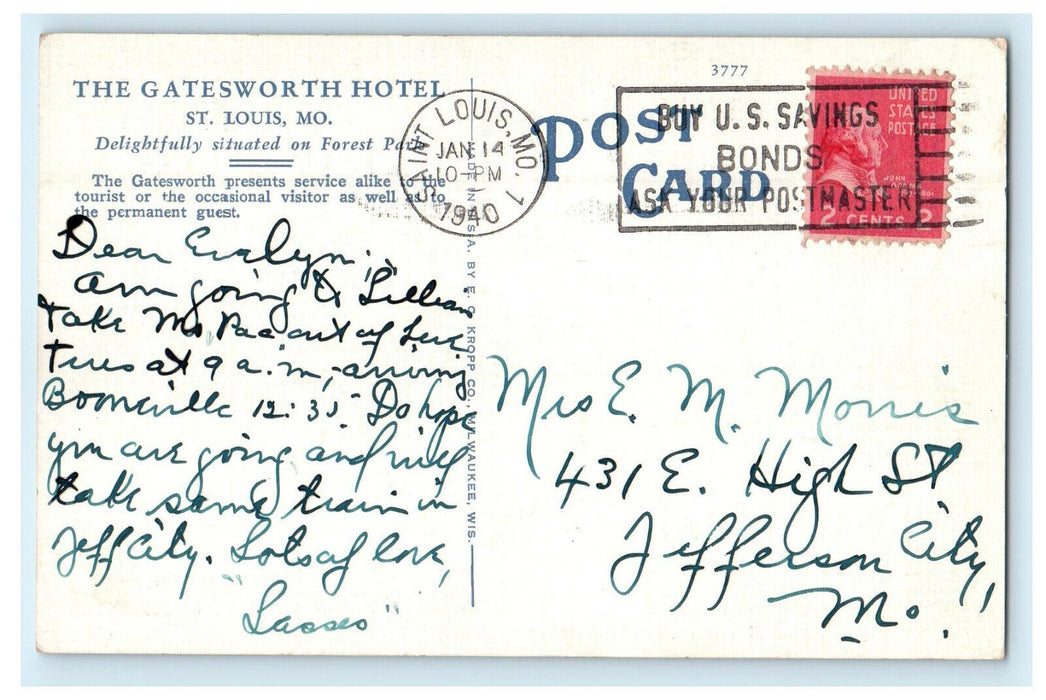 THE GATESWORTH HOTEL
ST. LOUIS, MO.
Delightfully situated on Forest Park
The Gatesworth presents service alike to the
tourist or the occasional visitor as well as to
the permanent guest.
Dear Evelyn;
Am going & Lillian
take Mo Pac out of here
Tues at 9 a.m, arriving
Booneville 12:35. Do hope
you are going and will
take same train in
Jeff City. Lots of love,
"Lasses"
MADE IN U.S.A. BY E. C. KROPP CO., MILWAUKEE, WIS.
3777
POST
CARD
SAINT LOUIS, MO. 1
JAN 14
10-PM
1940
BUY U.S. SAVINGS
BONDS
ASK YOUR POSTMASTER
UNITED
STATES
POSTAGE
JOHN
2 CENTS 2
Mrs E. M. Morris
431 E. High St
Jefferson City,
Mo.